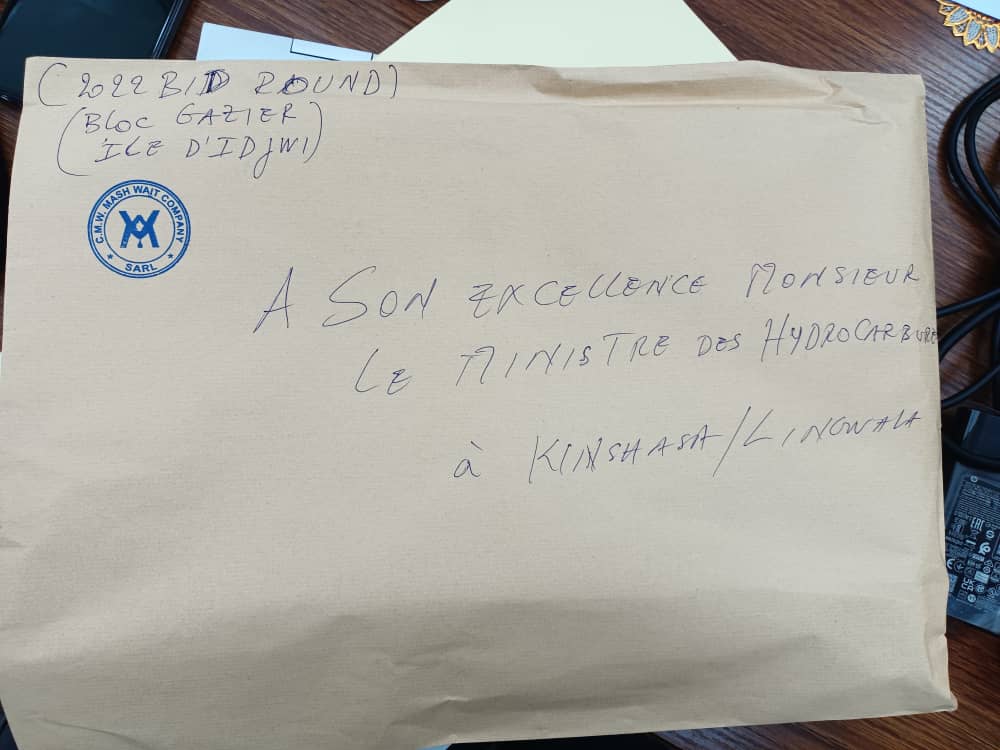 (2022 BID ROUND)
(BLOC GAZIER
ILE D'IDJWI)
C.M.W. MASH WAIT COMPANY
SARL
A SON EXCELLENCE MONSIEUR
LE MINISTRE DES HYDROCARBURE
à KINSHASA/LINGWALA